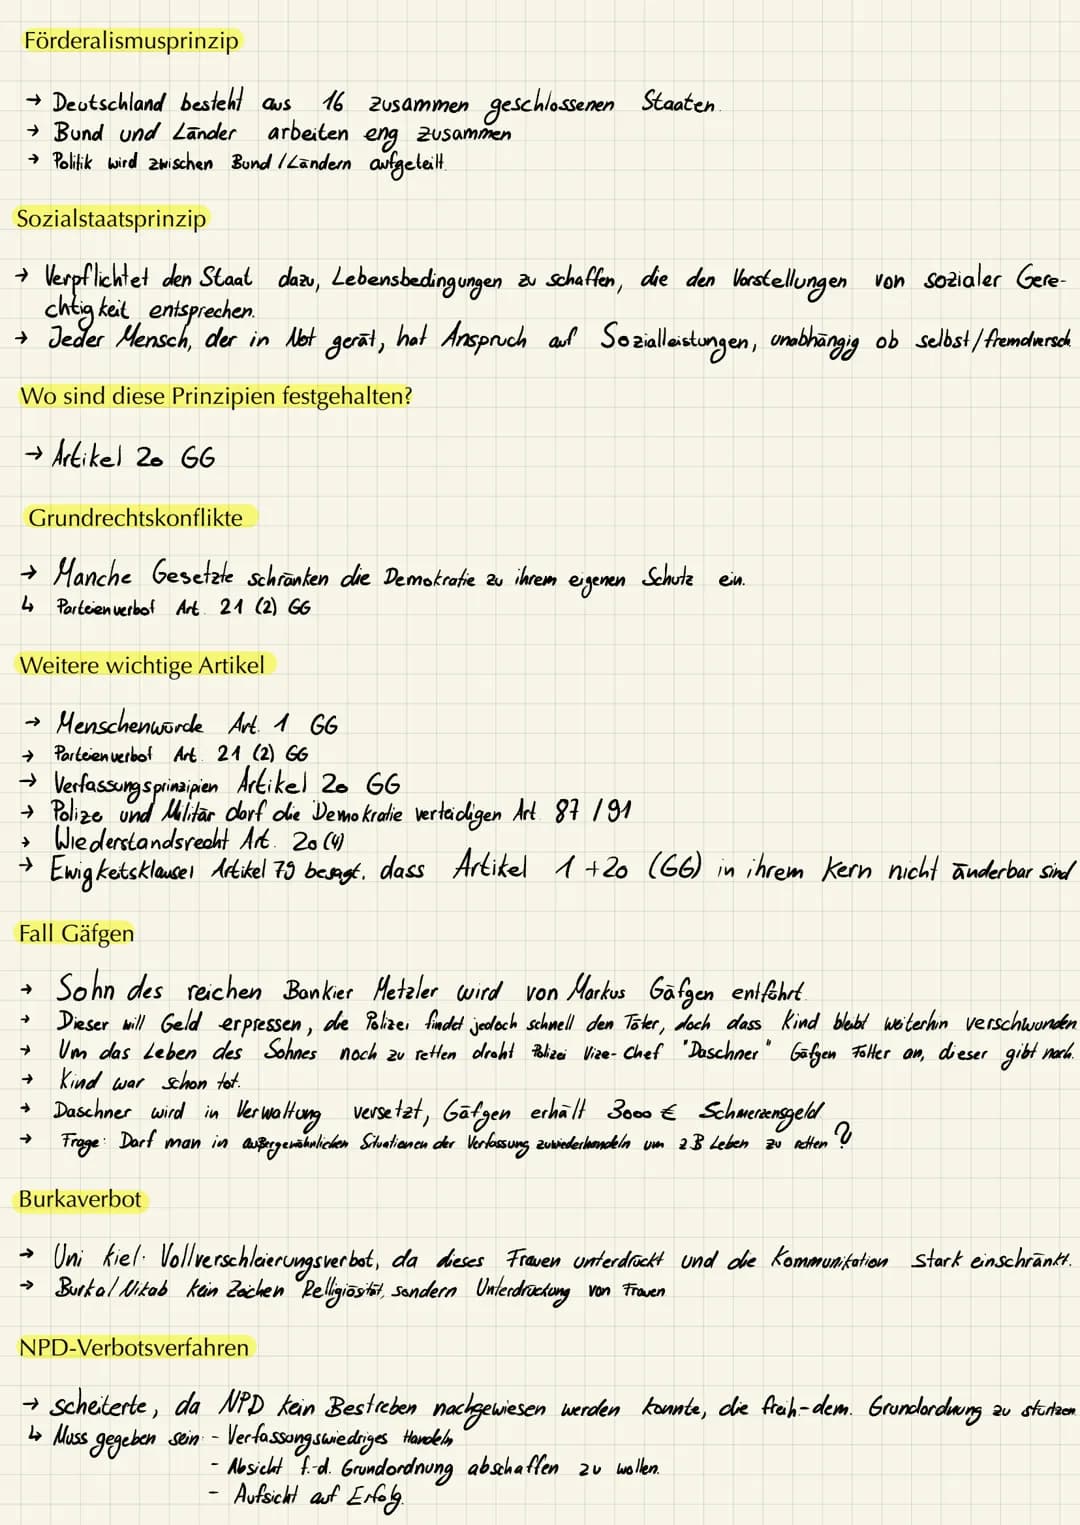 Förderalismusprinzip
→ Deutschland besteht aus 16 zusammen geschlossenen Staaten.
→ Bund und Länder arbeiten eng zusammen
→ Politik wird zwischen Bund / Ländern aufgeteilt.
Sozialstaatsprinzip
→ Verpflichtet den Staat dazu, Lebensbedingungen zu schaffen, die den Vorstellungen von sozialer Gere-
chtigkeit entsprechen.
→ Jeder Mensch, der in Not gerät, hat Anspruch auf Sozialleistungen, unabhängig ob selbst/fremdversch.
Wo sind diese Prinzipien festgehalten?
→ Artikel 20 GG
Grundrechtskonflikte
→ Manche Gesetzte schränken die Demokratie zu ihrem eigenen Schutz ein.
↳ Parteienverbot Art. 21 (2) GG
Weitere wichtige Artikel
→ Menschenwürde Art. 1 GG
→ Parteienverbot Art. 21 (2) GG
→ Verfassungsprinzipien Artikel 20 GG
→ Polize und Militär darf die Demokratie verteidigen Art. 87 / 91
→ Wiederstandsrecht Art. 20 (4)
→ Ewigkeitsklausel Artikel 79 besagt, dass Artikel 1 + 20 (GG) in ihrem Kern nicht änderbar sind
Fall Gäfgen
→ Sohn des reichen Bankier Metzler wird von Markus Gäfgen entführt.
→ Dieser will Geld erpressen, die Polizei findet jedoch schnell den Täter, doch dass Kind bleibt weiterhin verschwunden.
→ Um das Leben des Sohnes noch zu retten droht Polizei Vize-Chef "Daschner" Gäfgen Folter an, dieser gibt nach.
→ Kind war schon tot.
→ Daschner wird in Verwaltung versetzt, Gäfgen erhält 3000 € Schmerzensgeld.
→ Frage: Darf man in außergewöhnlichen Situationen der Verfassung zuwiederhandeln um z.B Leben zu retten?
Burkaverbot
→ Uni Kiel: Vollverschleierungsverbot, da dieses Frauen unterdrückt und die Kommunikation stark einschränkt.
→ Burka/Nikab kein Zeichen Relligiösität, sondern Unterdrückung von Frauen
NPD-Verbotsverfahren
→ scheiterte, da NPD kein Bestreben nachgewiesen werden konnte, die freih.-dem. Grundordnung zu stürtzen
↳ Muss gegeben sein: - Verfassungswiedriges Handeln
- Absicht f.-d. Grundordnung abschaffen zu wollen.
- Aufsicht auf Erfolg.